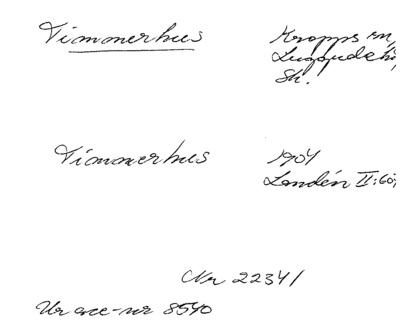 Timmerhus
Kropps sn,
Luggude h
Sk.
Timmerhus
1904
Landén II:60
Nr 22341
Ur acc-nr 8540